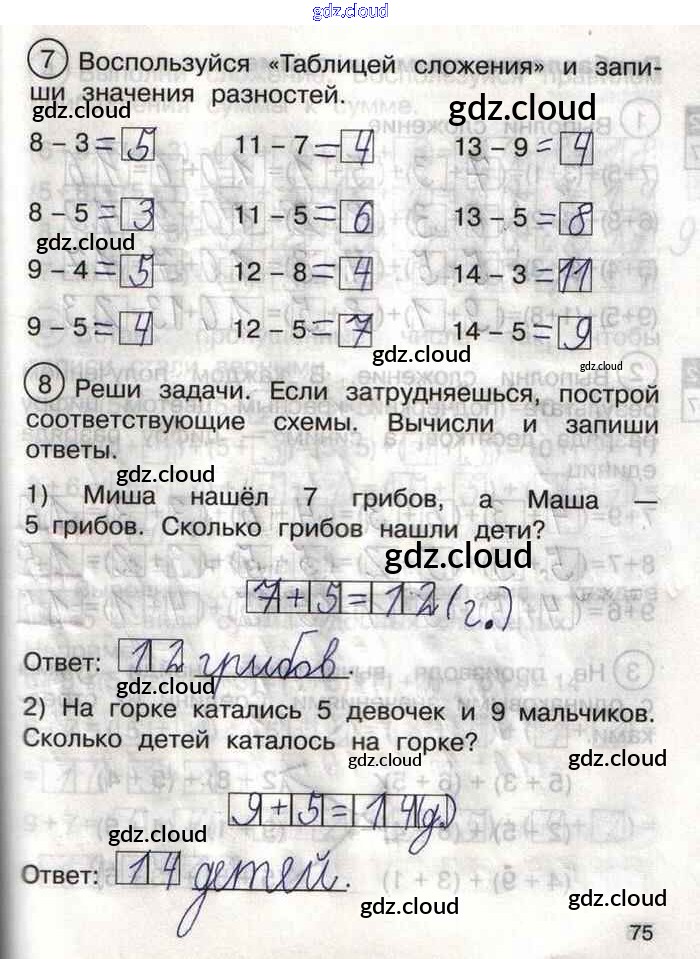 gdz.cloud
7 Воспользуйся «Таблицей сложения» и запи-
ши значения разностей.
gdz.cloud
gdz.cloud
8 – 3 = 5 11 – 7 = 4 13 – 9 = 4
8 – 5 = 3 11 – 5 = 6 13 – 5 = 8
gdz.cloud
9 – 4 = 5 12 – 8 = 4 14 – 3 = 11
9 – 5 = 4 12 – 5 = 7 14 – 5 = 9
gdz.cloud
gdz.cloud
8 Реши задачи. Если затрудняешься, построй
соответствующие схемы. Вычисли и запиши
ответы.
gdz.cloud
1) Миша нашёл 7 грибов, а Маша —
5 грибов. Сколько грибов нашли дети?
gdz.cloud
7 + 5 = 12 (г.)
Ответ: 12 грибов.
gdz.cloud
2) На горке катались 5 девочек и 9 мальчиков.
Сколько детей каталось на горке?
gdz.cloud
gdz.cloud
9 + 5 = 14 (д.)
gdz.cloud
Ответ: 14 детей.
gdz.cloud
gdz.cloud
75